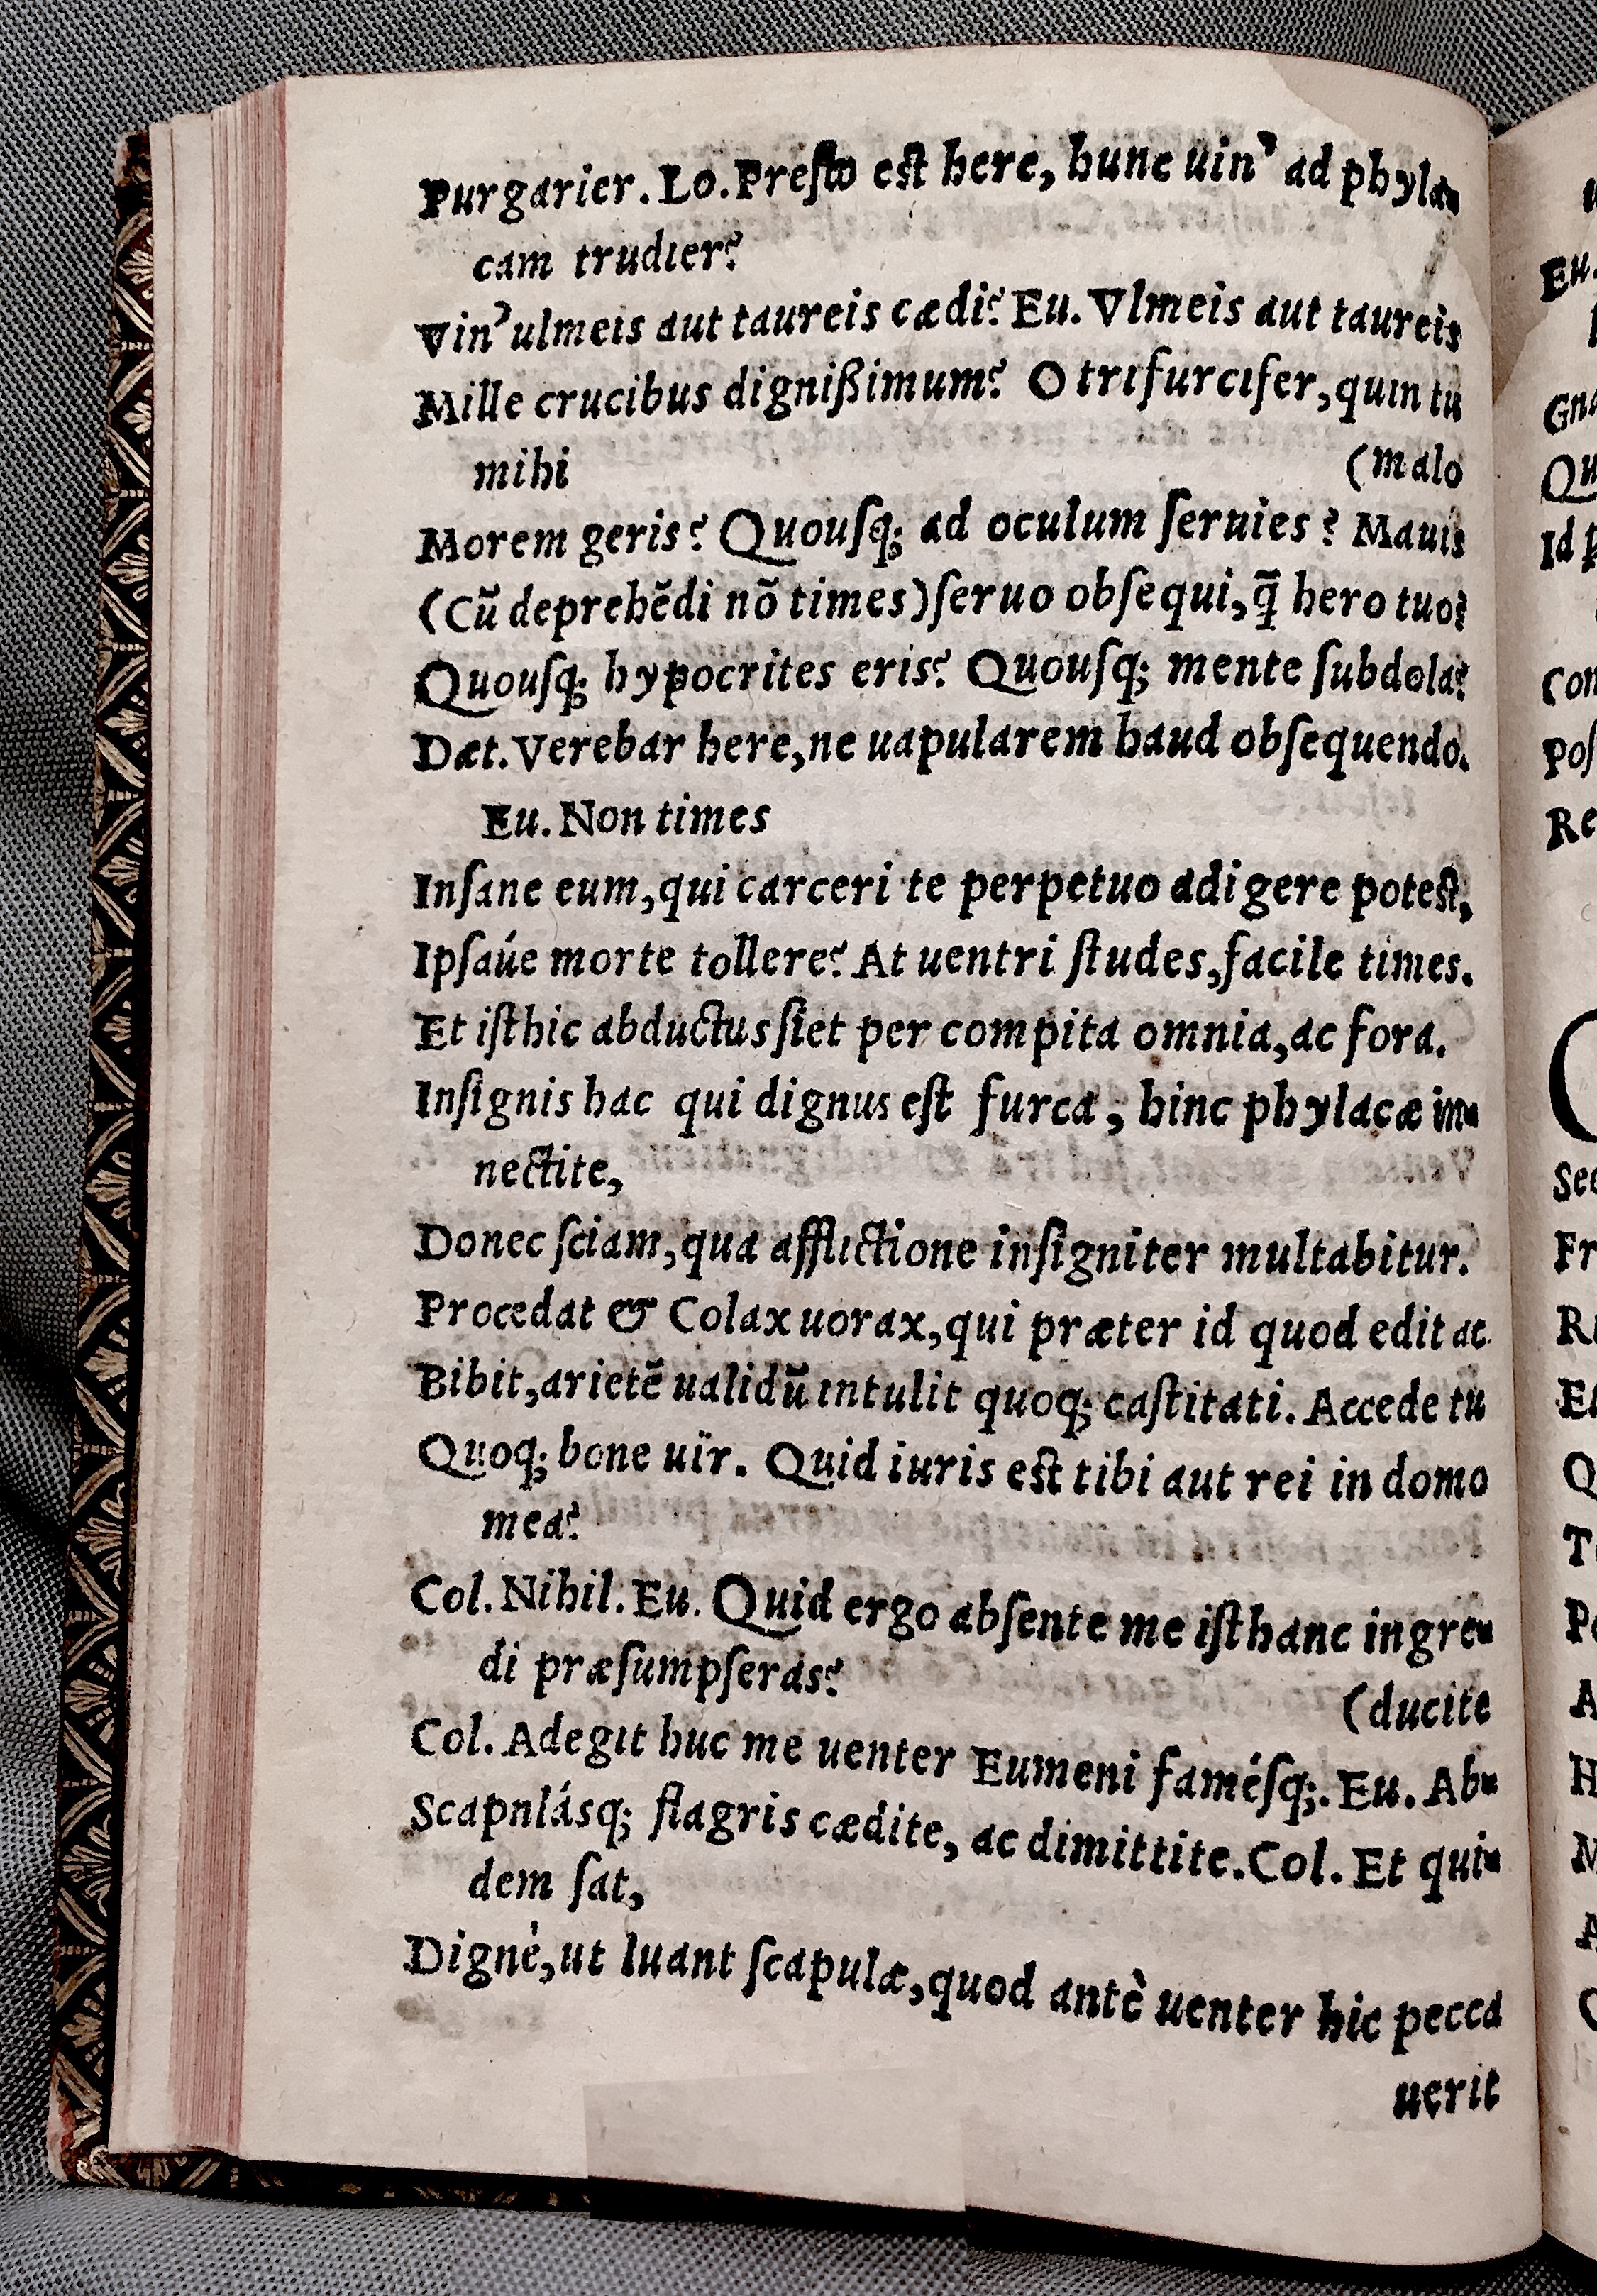 Purgarier. Lo. Presto est here, hunc uin' ad phyla-
cam trudier?
Vin' ulmeis aut taureis cædi? Eu. Vlmeis aut taureis
Mille crucibus dignißimum? O trifurcifer, quin tu
mihi (malo
Morem geris? Quousq; ad oculum seruies? Mauis
(Cũ deprehẽdi nõ times) seruo obsequi, q̃ hero tuo?
Quousq; hypocrites eris? Quousq; mente subdola?
Dæt. Verebar here, ne uapularem haud obsequendo.
Eu. Non times
Insane eum, qui carceri te perpetuo adigere potest,
Ipsaúe morte tollere? At uentri studes, facile times.
Et isthic abductus siet per compita omnia, ac fora.
Insignis hac qui dignus est furca, hinc phylacæ in-
nectite,
Donec sciam, qua afflictione insigniter multabitur.
Procedat & Colax uorax, qui præter id quod edit ac
Bibit, arietẽ ualidũ intulit quoq; castitati. Accede tu
Quoq; bone uir. Quid iuris est tibi aut rei in domo
mea?
Col. Nihil. Eu. Quid ergo absente me isthanc ingre-
di præsumpseras?
(ducite
Col. Adegit huc me uenter Eumeni famésq;. Eu. Ab-
Scapnlásq; flagris cædite, ac dimittite. Col. Et qui-
dem sat,
Dignè, ut luant scapulæ, quod antè uenter hic pecca
uerit
Eu.
Gna
Qu
Id p
Con
Pos
Re
Sed
Fr